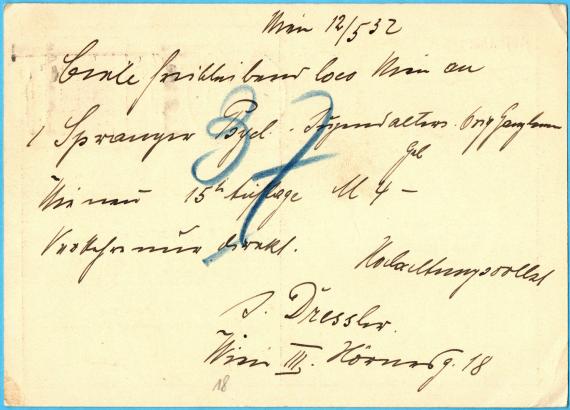 Wien 12/5 32
Biete freibleibend loco Wien an
1 Spranger Psych. Jugendalters. Orig Ganzleinen
geb
Wie neu 15te Auflage M 4 –
Verkehre nur direkt.
37
Hochachtungsvollst
J. Dressler.
Wien III. Hörnesg. 18
18